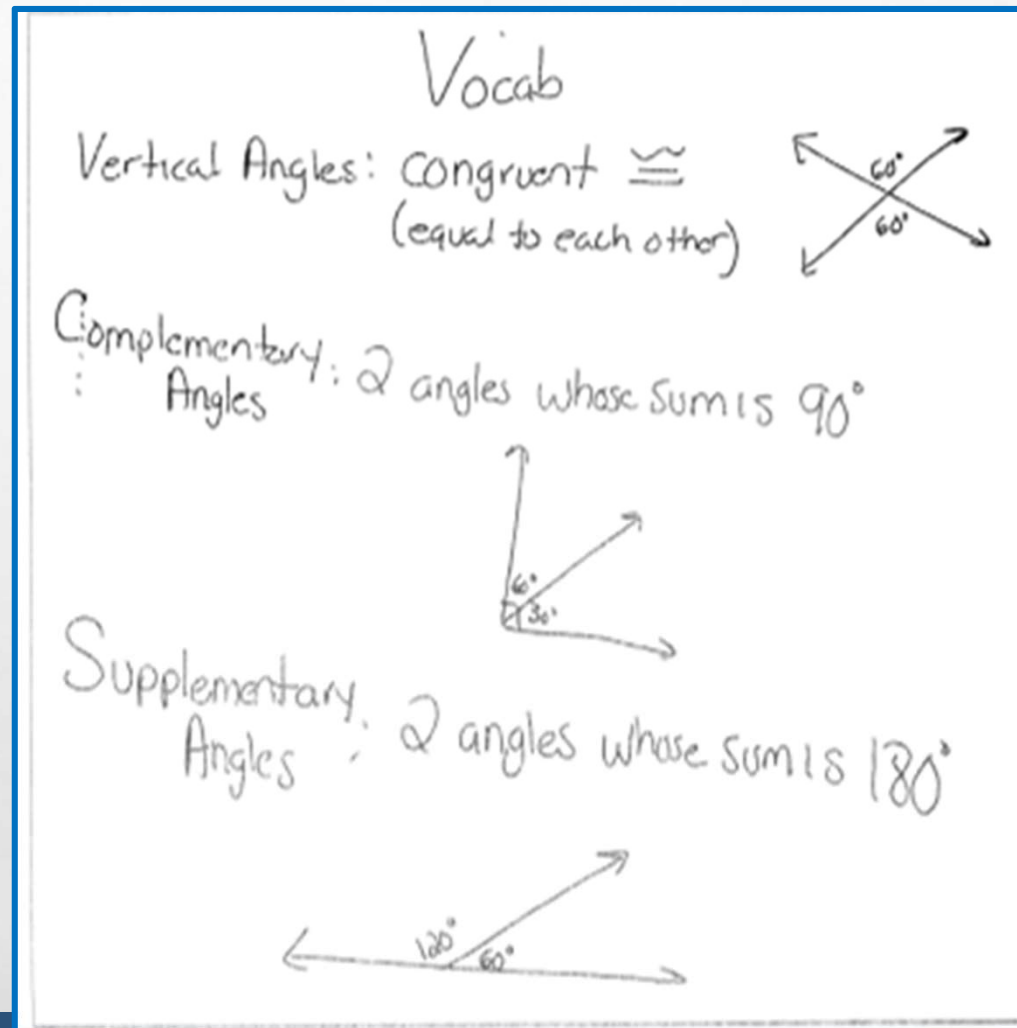 Vocab
Vertical Angles: congruent ≅
(equal to each other)
60°
60°
Complementary: 2 angles whose sum is 90°
Angles
6°
30°
Supplementary: 2 angles whose sum is 180°
Angles
120°
60°